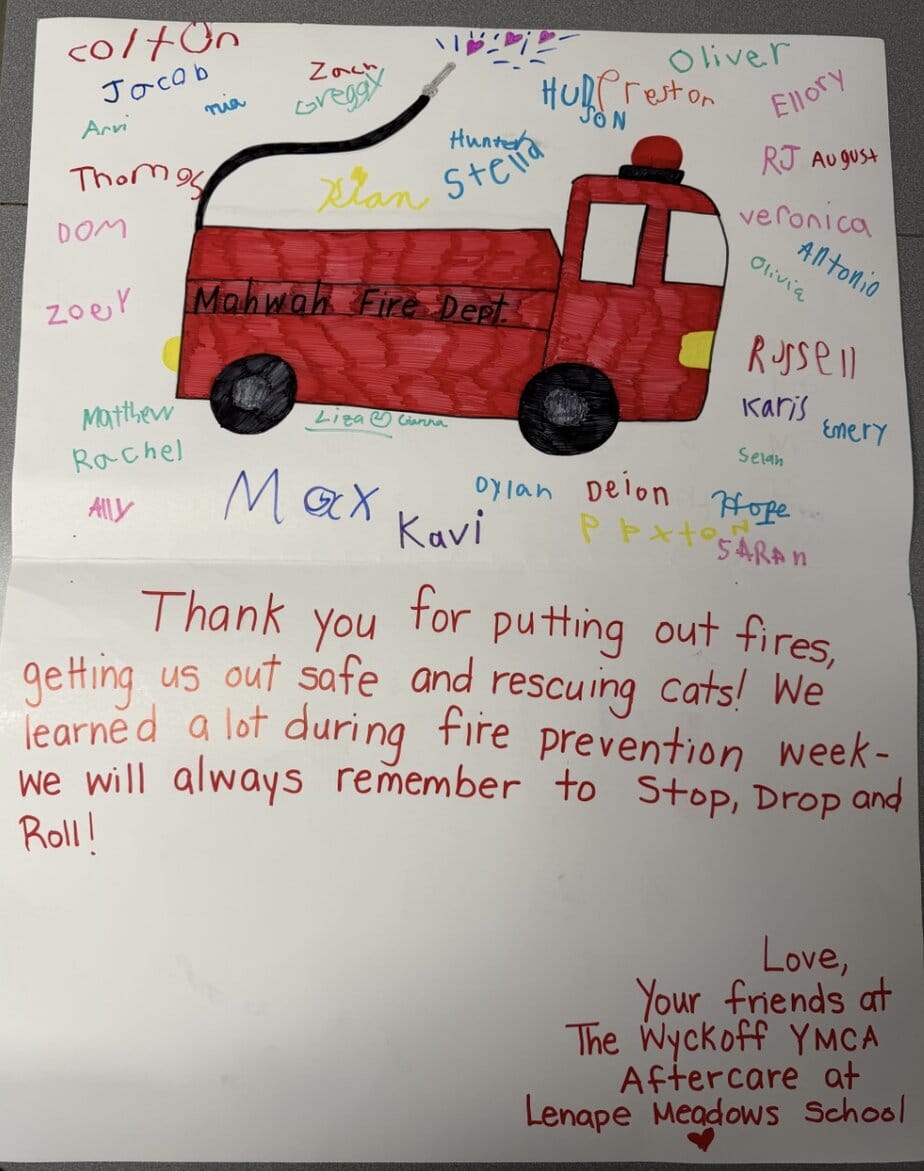 Colton
Oliver
Jacob
Zach
Greggy
mia
HUDSON
Preston
Ellory
Arvi
Hunter
Stella
RJ
AUGUST
Thomas
Kian
DOM
veronica
Antonio
Olivia
Mahwah Fire Dept.
ZoeY
Russell
Matthew
Liza
Gianna
Karis
Emery
Rachel
Selah
Ally
Max
Dylan
Deion
Hope
Kavi
PAxtoN
SARAh
Thank you for putting out fires,
getting us out safe and rescuing cats! We
learned a lot during fire prevention week-
we will always remember to Stop, Drop and
Roll!
Love,
Your friends at
The Wyckoff YMCA
Aftercare at
Lenape Meadows School